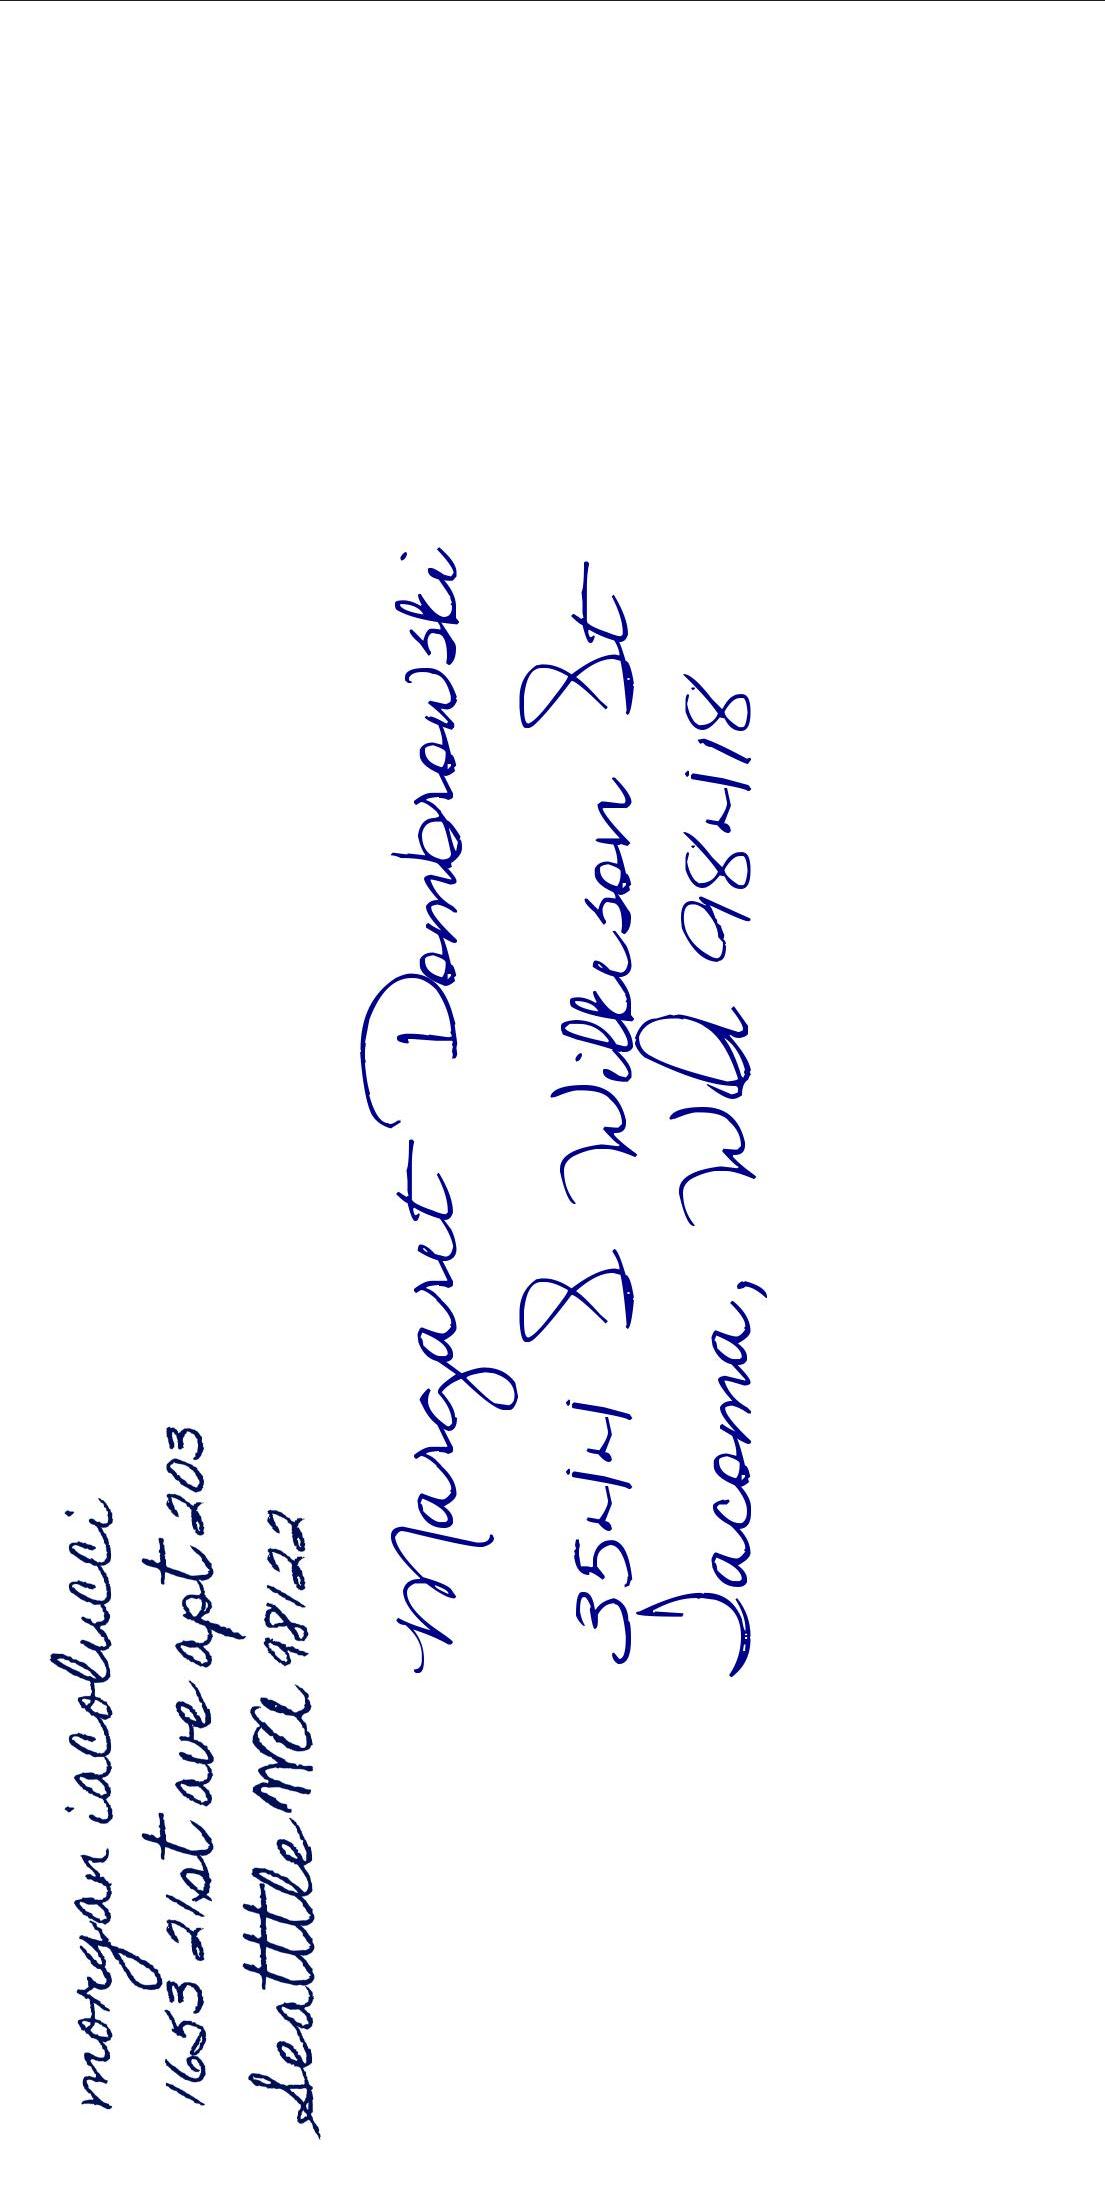 morgan iacolucci
1653 21st ave apt 203
Seatttle WA 98122
Margaret Dombrowski
3544 S Wilkeson St
Tacoma, WA 98418